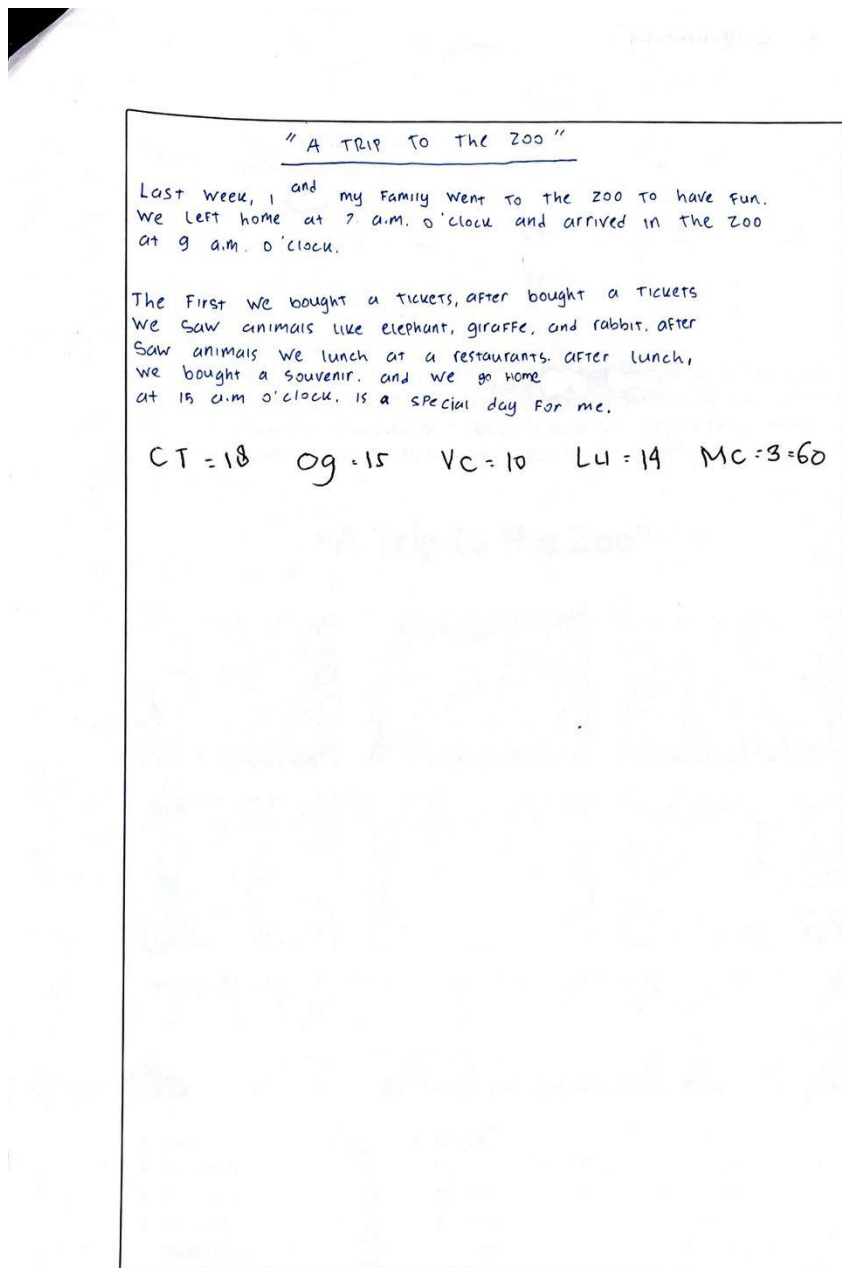 " A TRIP TO The ZOO "
Last week, I and my Family went To the zoo To have Fun.
We Left home at 7. a.m. o'clock and arrived in the zoo
at 9 a.m. o'clock.
The First we bought a tickets, after bought a Tickets
We Saw animals like elephant, giraffe, and rabbit. after
Saw animals we lunch at a restaurants. after lunch,
we bought a souvenir. and we go Home
at 15 a.m o'clock. is a special day For me.
CT = 18 Og = 15 VC = 10 LU = 14 MC = 3 = 60